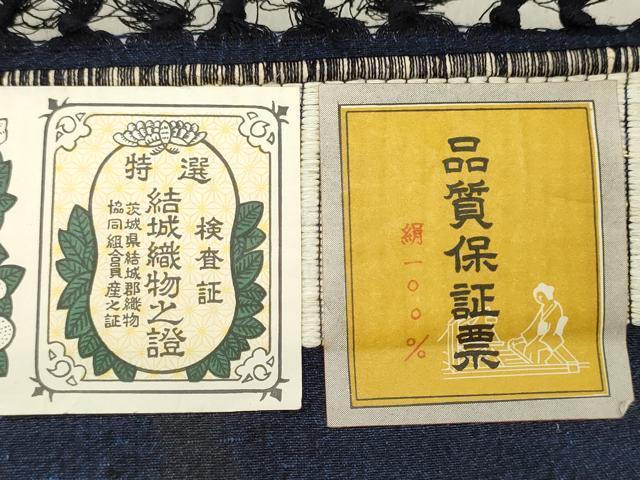 特選
検査証
結城織物之證
茨城県結城郡織物
協同組合員産之証
品質保証票
絹一〇〇%